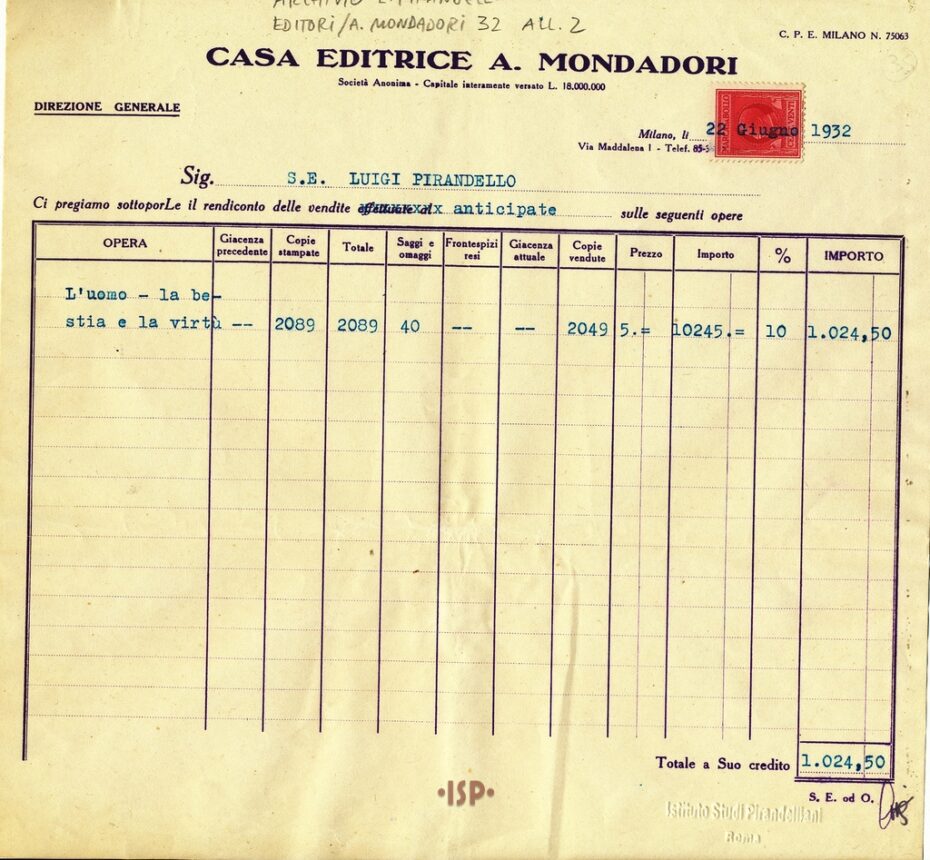 EDITORI/A. MONDADORI 32 ALL. 2
C. P. E. MILANO N. 75063
CASA EDITRICE A. MONDADORI
Società Anonima - Capitale interamente versato L. 18.000.000
DIREZIONE GENERALE
Milano, li 22 Giugno 1932
Via Maddalena 1 - Telef. 85-5
Sig. S.E. LUIGI PIRANDELLO
Ci pregiamo sottoporLe il rendiconto delle vendite anticipate sulle seguenti opere
OPERA Giacenza precedente Copie stampate Totale Saggi e omaggi Frontespizi resi Giacenza attuale Copie vendute Prezzo Importo % IMPORTO
L'uomo - la be-
stia e la virtù -- 2089 2089 40 -- -- 2049 5.= 10245.= 10 1.024,50
Totale a Suo credito 1.024,50
S. E. od O.
·ISP·
Istituto Studi Pirandelliani
Roma